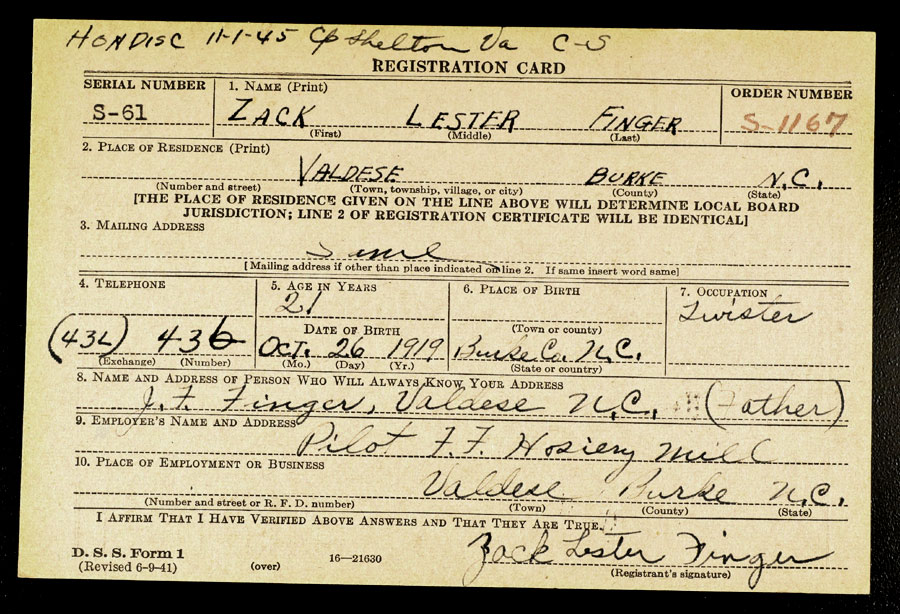 HON DISC 11-1-45 Cp Shelton Va C-S
REGISTRATION CARD
SERIAL NUMBER
S-61
1. NAME (Print)
ZACK LESTER FINGER
(First) (Middle) (Last)
ORDER NUMBER
S-1167
2. PLACE OF RESIDENCE (Print)
VALDESE BURKE N.C.
(Number and street) (Town, township, village, or city) (County) (State)
[THE PLACE OF RESIDENCE GIVEN ON THE LINE ABOVE WILL DETERMINE LOCAL BOARD
JURISDICTION; LINE 2 OF REGISTRATION CERTIFICATE WILL BE IDENTICAL]
3. MAILING ADDRESS
Same
[Mailing address if other than place indicated on line 2. If same insert word same]
4. TELEPHONE
(43L) 436
(Exchange) (Number)
5. AGE IN YEARS
21
DATE OF BIRTH
OCT. 26 1919
(Mo.) (Day) (Yr.)
6. PLACE OF BIRTH
(Town or county)
Burke Co. N.C.
(State or country)
7. OCCUPATION
Twister
8. NAME AND ADDRESS OF PERSON WHO WILL ALWAYS KNOW YOUR ADDRESS
J. F. Finger, Valdese N.C. (Father)
9. EMPLOYER'S NAME AND ADDRESS
Pilot F. F. Hosiery Mill
10. PLACE OF EMPLOYMENT OR BUSINESS
Valdese Burke N.C.
(Number and street or R. F. D. number) (Town) (County) (State)
I AFFIRM THAT I HAVE VERIFIED ABOVE ANSWERS AND THAT THEY ARE TRUE.
Zack Lester Finger
(Registrant's signature)
D. S. S. Form 1
(Revised 6-9-41) (over) 16—21630